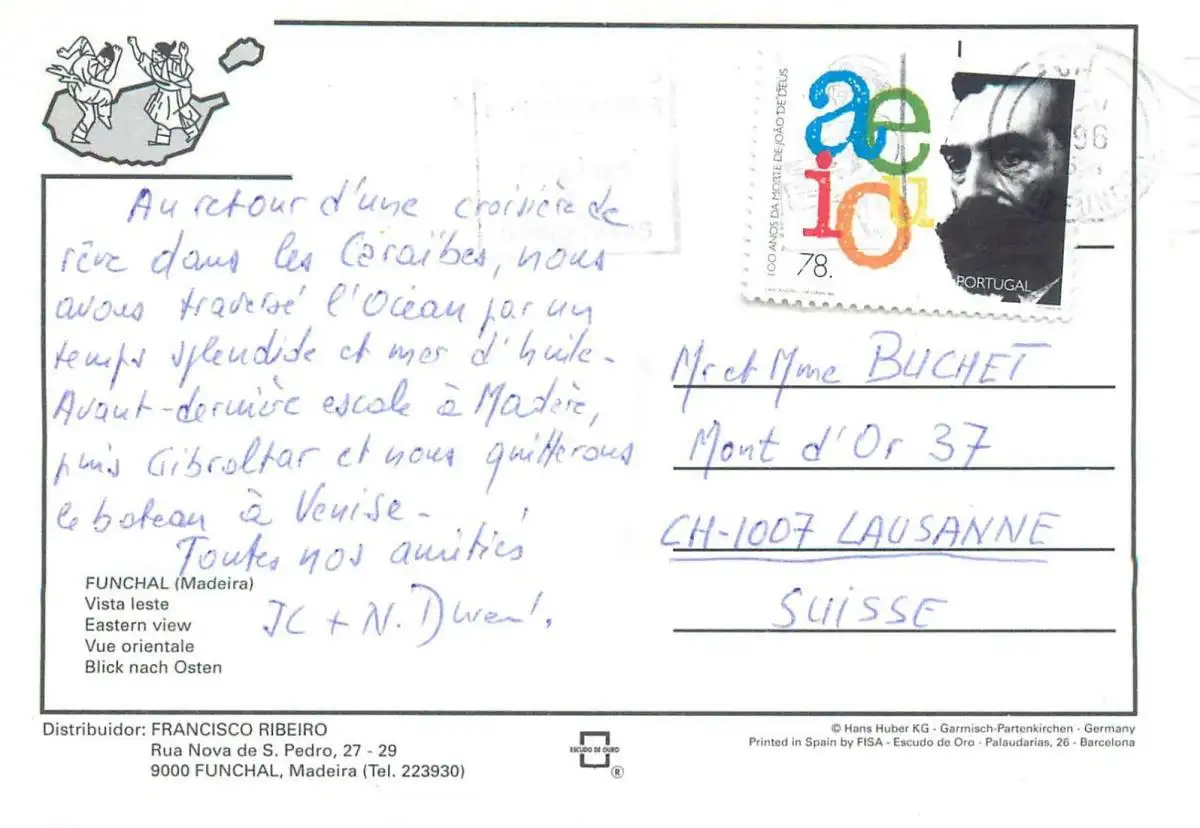 Au retour d'une croisière de
rêve dans les Caraïbes, nous
avons traversé l'Océan par un
temps splendide et mer d'huile.
Avant-dernière escale à Madère,
puis Gibraltar et nous quitterons
le bateau à Venise.
Toutes nos amitiés
JC + N.
FUNCHAL (Madeira)
Vista leste
Eastern view
Vue orientale
Blick nach Osten
100 ANOS DA MORTE DE JOÃO DE DEUS
a e
i o u
78.
PORTUGAL
96
Mr et Mme BUCHET
Mont d'Or 37
CH-1007 LAUSANNE
SUISSE
Distribuidor: FRANCISCO RIBEIRO
Rua Nova de S. Pedro, 27 - 29
9000 FUNCHAL, Madeira (Tel. 223930)
ESCUDO DE OURO
®
© Hans Huber KG - Garmisch-Partenkirchen - Germany
Printed in Spain by FISA - Escudo de Oro - Palaudarias, 26 - Barcelona